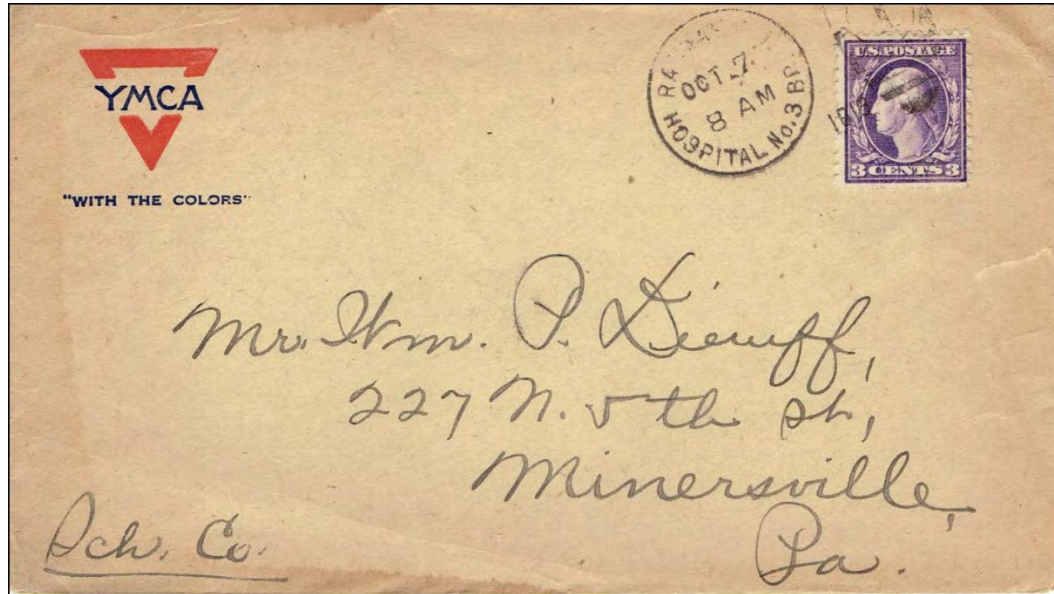 YMCA
"WITH THE COLORS"
OCT 7
8 AM
HOSPITAL No. 3 BR
U.S. POSTAGE
3 CENTS 3
Mr. Wm. P. Dieruff,
227 N. 5th st,
Minersville,
Pa.
Sch. Co.